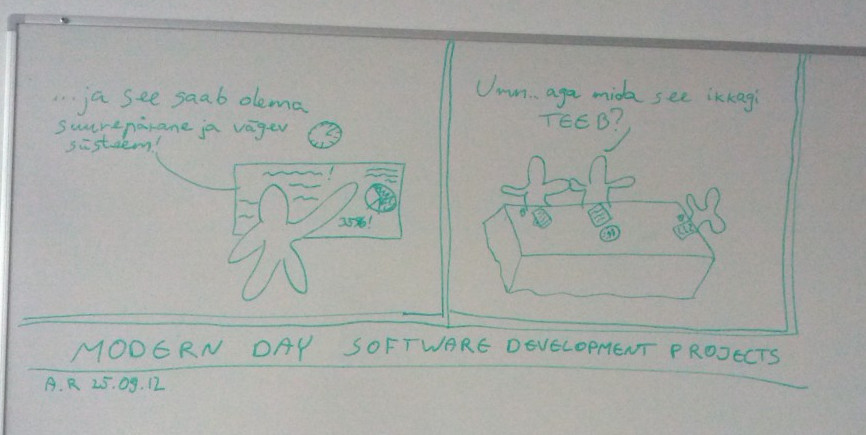 ...ja see saab olema
suurepärane ja vägev
süsteem!
!
35%!
Umm.. aga mida see ikkagi
TEEB?
MODERN DAY SOFTWARE DEVELOPMENT PROJECTS
A.R 25.09.12